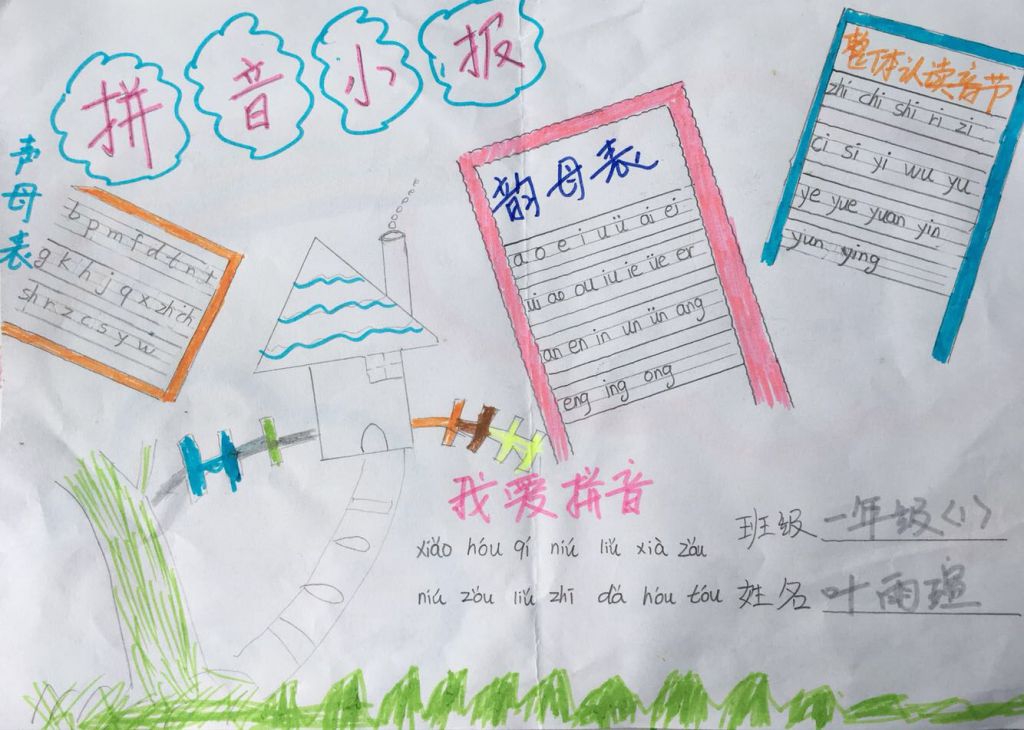 拼音小报
声母表
b p m f d t n l
g k h j q x zh ch
sh r z c s y w
韵母表
a o e i u ü ai ei
ui ao ou iu ie üe er
an en in un ün ang
eng ing ong
整体认读音节
zhi chi shi ri zi
ci si yi wu yu
ye yue yuan yin
yun ying
我爱拼音
xiǎo hóu qí niú liú xià zǒu
niú zǒu liú zhī dǎ hóu tóu
班级 一年级(1)
姓名 叶雨瑄